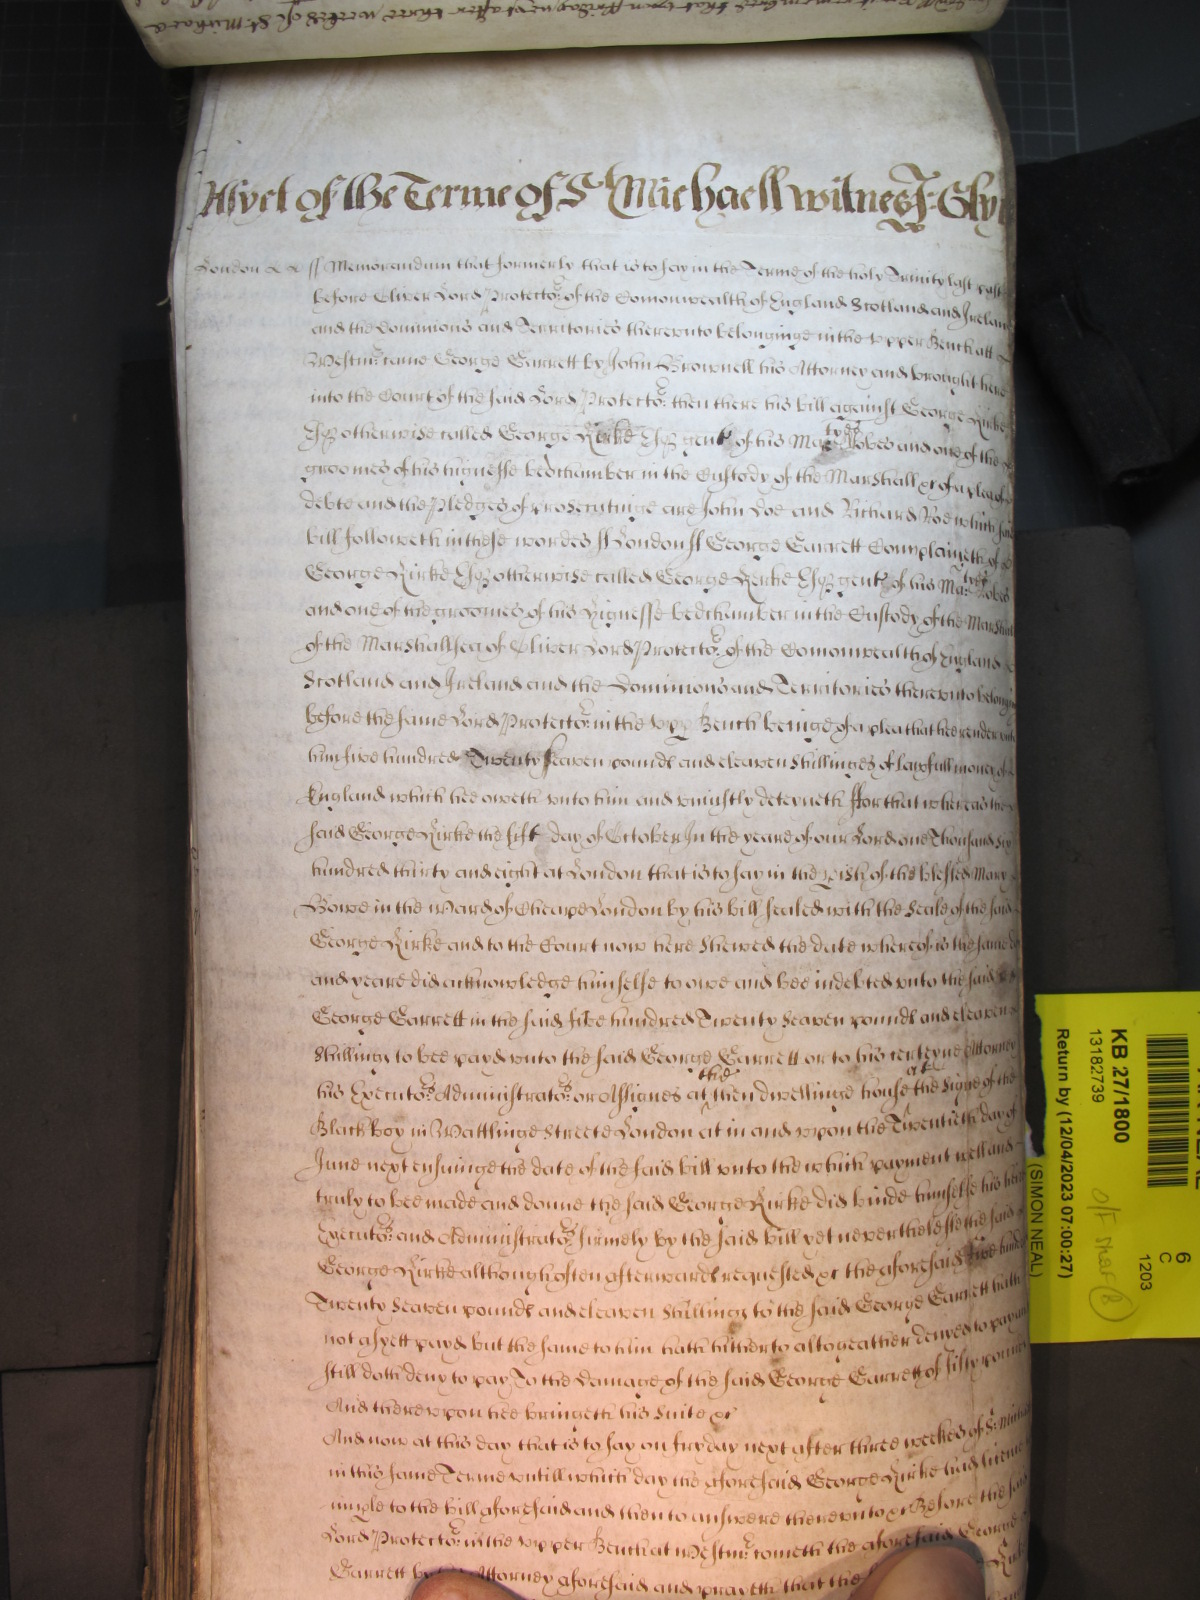 As yet of the Terme of St Michaell witnes J: Gly
London ss Memorandum that formerly that is to say in the Terme of the holy Trinity last past
before Oliver Lord Protector of the Comonwealth of England Scotland and Ireland
and the Dominions and Territories thereunto belonginge in the upper Bench att
Westmr: came George Garrett by John Brownell his Attorney and brought here
into the Court of the said Lord Protector: then there his bill against George Kirke
Esqr otherwise called George Kirke Esqr gent of his Maties Robes and one of the
groomes of his highnesse bedchamber in the Custody of the Marshall &c of a plea of
debte and the Pledges of prosecutinge are John Doe and Richard Roe which said
bill followeth in these wordes ss London ss George Garrett Complaineth of
George Kirke Esqr otherwise called George Kerke Esqr gent of his Maties Robes
and one of the groomes of his Highnesse bedchamber in the Custody of the Marshall
of the Marshallsea of Oliver Lord Protector: of the Comonwealth of England
Scotland and Ireland and the Dominions and Territories thereunto belonging
before the same Lord Protector: in the upp Bench beinge of a plea that hee render unto
him five hundred Twenty seaven pounds and eleaven shillinges of lawfull money of
England which hee oweth unto him and uniustly deteyneth ffor that whereas the
said George Kirke the first day of October In the yeare of our Lord one Thousand six
hundred thirty and eight at London that is to say in the pish of the blessed Mary
Bowe in the ward of Cheape London by his bill sealed with the Seale of the said
George Kirke and to the Court now here shewed the date whereof is the same day
and yeare did acknowledge himselfe to owe and bee indebted unto the said
George Garrett in the said five hundred Twenty seaven pounds and eleaven
shillings to bee payd unto the said George Garrett or to his certeyne Attorney
his Executors: Administrators: or Assignes at the then dwellinge house att the Signe of the
Black boy in Wattlinge Streete London at in and upon the Twentieth day of
June next ensuinge the date of the said bill unto the which payment well and
truly to bee made and donne the said George Kirke did binde himselfe his heires
Executors: and Administrators: firmely by the said bill yet neverthelesse the said
George Kirke although often afterwards requested &c the aforesaid five hundred
Twenty seaven pounds and eleaven shillings to the said George Garrett hath
not as yett payd but the same to him hath hitherto altogeather denyed to pay and
still doth deny to pay To the damage of the said George Garrett of fifty pounds
And thereupon hee bringeth his suite &c
And now at this day that is to say on fryday next after three weekes of St Michaell
in this same Terme untill which day the aforesaid George Kirke had licence
imple to the bill aforesaid and then to answere thereunto &c Before the said
Lord Protector: in the upper Bench at Westmr: cometh the aforesaid George
Garrett by Attorney aforesaid and prayeth that the
KB 27/1800
13182739
Return by (12/04/2023 07:00:27)
(SIMON NEAL)
6
C
1203